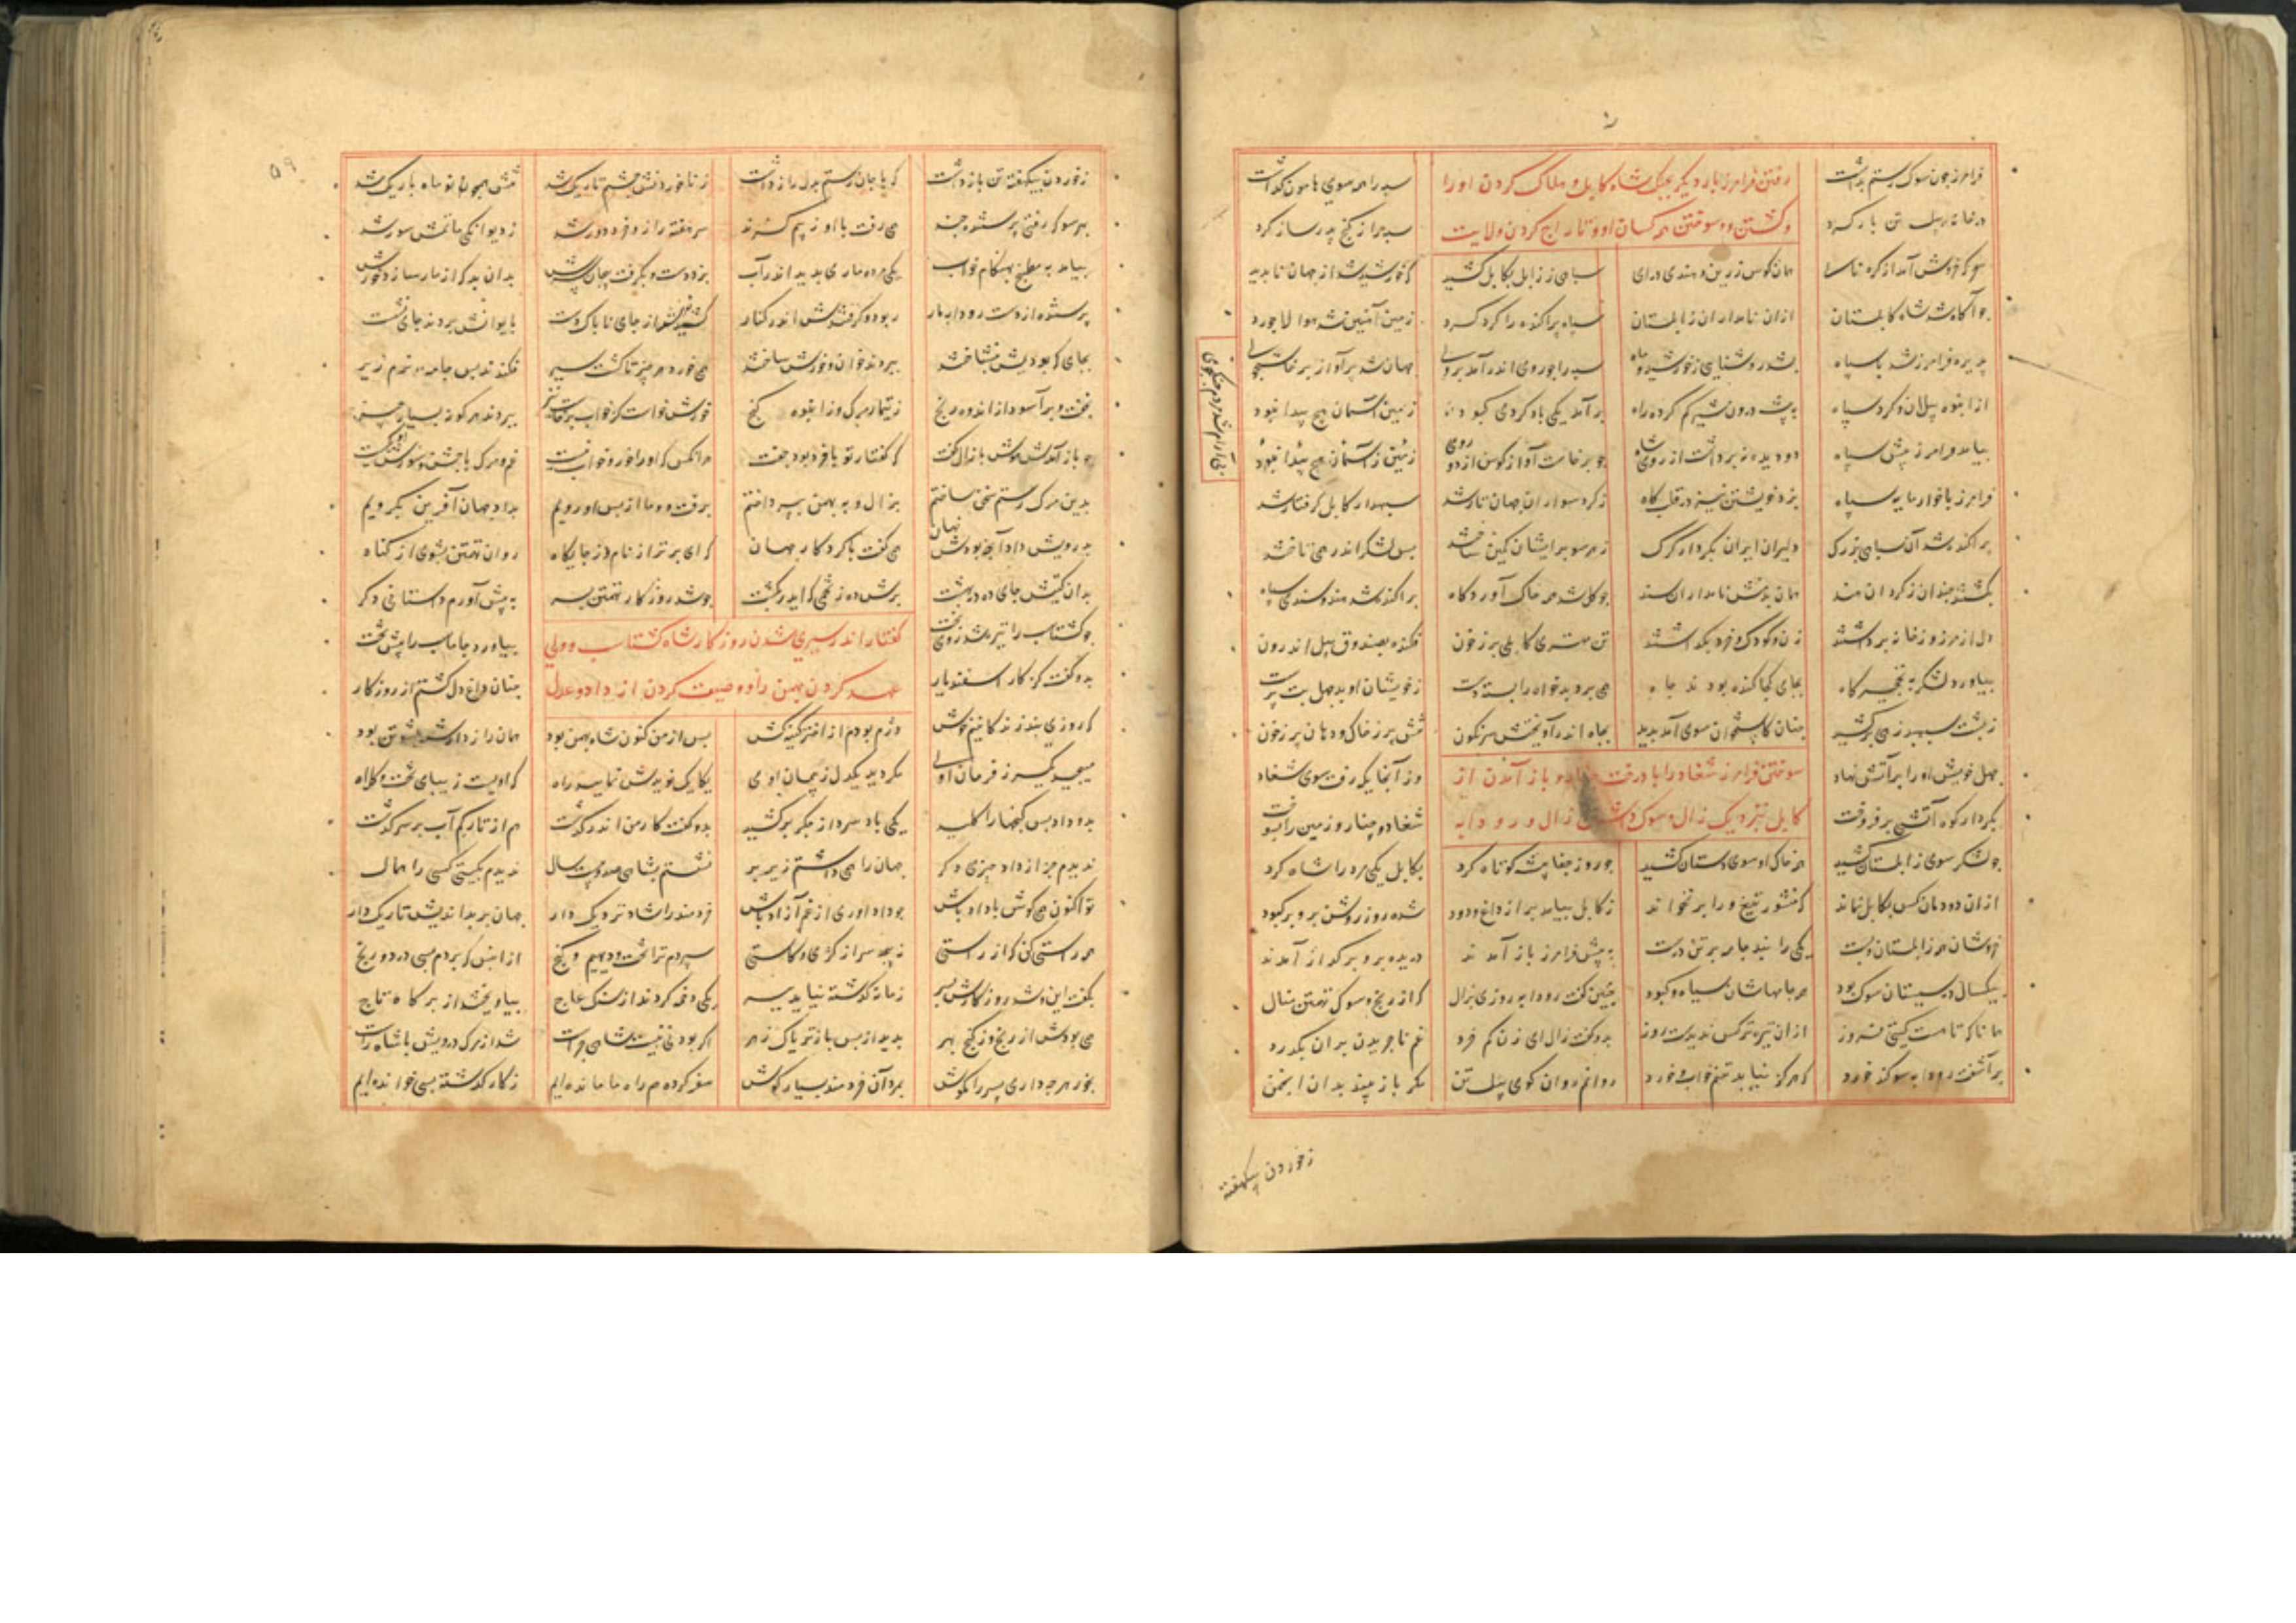 فرامرز چون سوک رستم بداشت سپه را همه سوی هامون گذاشت
رفتن فرامرز بار دیگر بجنگ شاه کابل و هلاک کردن او را
در خانه پیل تن باز کرد سپه را ز گنج پدر ساز کرد
و کشتن و سوختن همه کسان او و تاراج کردن ولایت
همان کوس زرین و هندی درای سپاهی ز زابل بکابل کشید که خورشید شد از جهان ناپدید
چو آگاه شد شاه کابلستان ازان نامداران زابلستان سپاه پراکنده را گرد کرد زمین آهنین شد هوا لاجورد
پذیره فرامرز شد با سپاه بشد روشنایی ز خورشید و ماه سپه را چو روی اندر آمد بروی جهان شد پرآواز پرخاشجوی
از انبوه پیلان و گرد سپاه به بیشه درون شیر گم کرده راه برآمد یکی باد و گردی کبود زمین ز آسمان هیچ پیدا نبود
بیامد فرامرز پیش سپاه دو دیده نه برداشت از روی شاه چو برخاست آواز کوس از دو روی
بی آرام شد مردم جنگجوی
فرامرز با خوارمایه سپاه بزد خویشتن نیز در قلبگاه ز گرد سواران جهان تار شد سپهدار کابل گرفتار شد
پراکنده شد آن سپاهی بزرگ دلیران ایران بکردار گرگ ز هر سو برایشان کمین ساختند پس لشکر اندر همی تاختند
بکشتند چندان ز گردان هند همان بدمنش نامداران سند چو گل شد همه خاک آوردگاه پراکنده شد هند و سندی سپاه
دل از مرز و ز خانه برداشتند زن و کودک خرد بگذاشتند تن مهتر کابلی پر ز خون فکنده بصندوق پیل اندرون
بیاورد لشکر به نخچیرگاه بجای کجا کنده بودند چاه همی برد بدخواه را بسته دست ز خویشان او چهل بت پرست
ز پشت سپهبد زهی برکشید چنان کاستخوان سوی آمد پدید بچاه اندر آویختش سرنگون تنش پر ز خاک و دهان پر ز خون
چهل خویش او را بر آتش نهاد وز آنجایگه رفت سوی شغاد
سوختن فرامرز شغاد را با درخت چنار و باز آمدن از
بکردار کوه آتشی برفروخت شغاد و چنار و زمین را بسوخت
کابل بنزدیک زال و سوک داشتن زال و رودابه
چو لشکر سوی زابلستان کشید همه خاک او سوی دستان کشید چو روز جفاپیشه کوتاه کرد بکابل یکی مرد را شاه کرد
ازان دودمان کس بکابل نماند که منشور تیغ ورا برنخواند ز کابل بیامد پر از داغ و دود شده روز روشن برو بر کبود
خروشان همه زابلستان و بست یکی را نبد جامه بر تن درست به پیش فرامرز باز آمدند دریده بر و بر گداز آمدند
بیکسال در سیستان سوک بود همه جامهاشان سیاه و کبود چنین گفت رودابه روزی بزال که از رنج و سوک تهمتن بنال
همانا که تا هست گیتی فروز ازان تیره‌تر کس ندیدست روز بدو گفت زال ای زن کم خرد غم ناچریدن بدان بگذرد
برآشفت رودابه سوگند خورد که هرگز نیابد تنم خواب و خورد روانم روان گو پیل تن مگر باز بیند بدان انجمن
ز خوردن یکهفته
ز خوردن یکهفته تن باز داشت که با جان رستم بدل راز داشت ز ناخوردنش چشم تاریک شد تنش همچو نو ماه باریک شد
بهر سو که رفتی پرستنده چند همی رفت با او ز بیم گزند سر هفته را زو خرد دور شد ز دیوانگی ماتمش سور شد
بیامد به مطبخ بهنگام خواب یکی مرده ماری بدید اندر آب بزد دست و بگرفت پیچان سرش بدان بد که از مار سازد خورش
پرستنده از دست رودابه مار ربود و گرفتندش اندر کنار کشیدندش از جای ناپاک دست بایوانش بردند جای نشست
بجای که بودیش بنشاختند ببردند خوان و خورش ساختند همی خورد هر چیز تا گشت سیر فکندند پس جامه نرم زیر
بخفت و برآسود از اندوه و رنج ز تیمار مرگ وز انبوه گنج خورش خواست کز خواب برخاستی ببردند هر گونه بسیار چیز
چو باز آمدش هوش با زال گفت که گفتار تو با خرد بود جفت هرانکس که او را خور و خواب نیست غم مرگ با جشن و سورش یکیست
بدین مرگ رستم سخن ساختم بزال و به بهمن بپرداختم برفت و ما از پس او رویم بداد جهان آفرین بگرویم
به درویش داد آنچه بودش نهان همی گفت با کردگار جهان که ای برتر از نام و ز جایگاه روان تهمتن بشوی از گناه
بدان گیتیش جای ده در بهشت برش ده ز تخمی که ایدر بکشت چو شد روزگار تهمتن بسر به پیش آورم داستانی دگر
چو گشتاسپ را تیره شد روی بخت بیاورد جاماسپ را پیش تخت
گفتار اندر سپری شدن روزگار شاه گشتاسپ و ولی
بدو گفت کز کار اسفندیار چنان داغ دل گشتم از روزگار
عهد کردن بهمن را و وصیت کردن از داد و عدل
که روزی نبد زندگانیم خوش دژم بودم از اختر کینه‌کش پس از من کنون شاه بهمن بود همان رازدارش پشوتن بود
مپیچید سر ز فرمان اوی مگردید یکدل ز پیمان اوی یکایک نویدش نمایید راه که اویست زیبای تخت و کلاه
بدو داد پس گنجها را کلید یکی باد سرد از جگر برکشید بدو گفت کار من اندر گذشت هم از تارکم آب برسر گذشت
نشستم بشاهی صد و بیست سال ندیدم بگیتی کسی را همال ندیدم جز از داد چیزی دگر جهان را همی داشتم زیر بر
تو اکنون همی کوش با داد باش چو داد آوری از غم آزاد باش خردمند را شاد و نزدیک دار جهان بر بداندیش تاریک دار
همه راستی کن که از راستی نپیچد سر از کژی و کاستی سپردم ترا تخت و دیهیم و گنج ازان پس که بردم بسی درد و رنج
بگفت این و شد روزگارش بسر زمان گذشته نیابد بسر یکی دخمه کردند از سنگ عاج بیاویختند از بر گاه تاج
همی بودش از رنج و ز گنج بهر بدید از پس باز تریاک زهر اگر بودنی نیست شاهی چراست شد از مرگ درویش با شاه راست
بخور هرچه داری پسر را مکوش بمرد آن خردمند بسیار گوش سفر کرده همراه ما مانده‌ایم ز کار گذشته بسی خوانده‌ایم